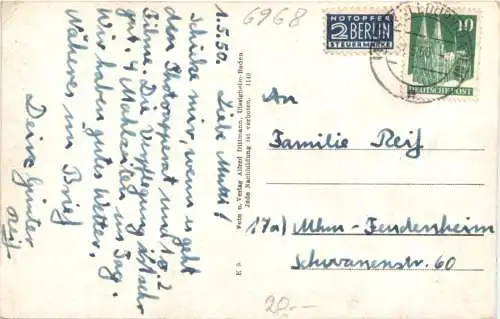 6968
NOTOPFER
2 BERLIN
STEUERMARKE
10
DEUTSCHE POST
1.5.50. Liebe Mutti!
Schicke mir, wenn es geht
den Photoapparat und 1 o. 2
Filme. Die Verpflegung ist sehr
gut. 4 Mahlzeiten am Tag.
Wir haben gutes Wetter.
Näheres im Brief
Deine Günter
Reif
Foto u. Verlag Alfred Dittmann, Hasigheim-Baden.
Jede Nachbildung ist verboten.
E 5
An
Familie Reif
17a) Mhm-Feudenheim
Schwanenstr. 60
20.-